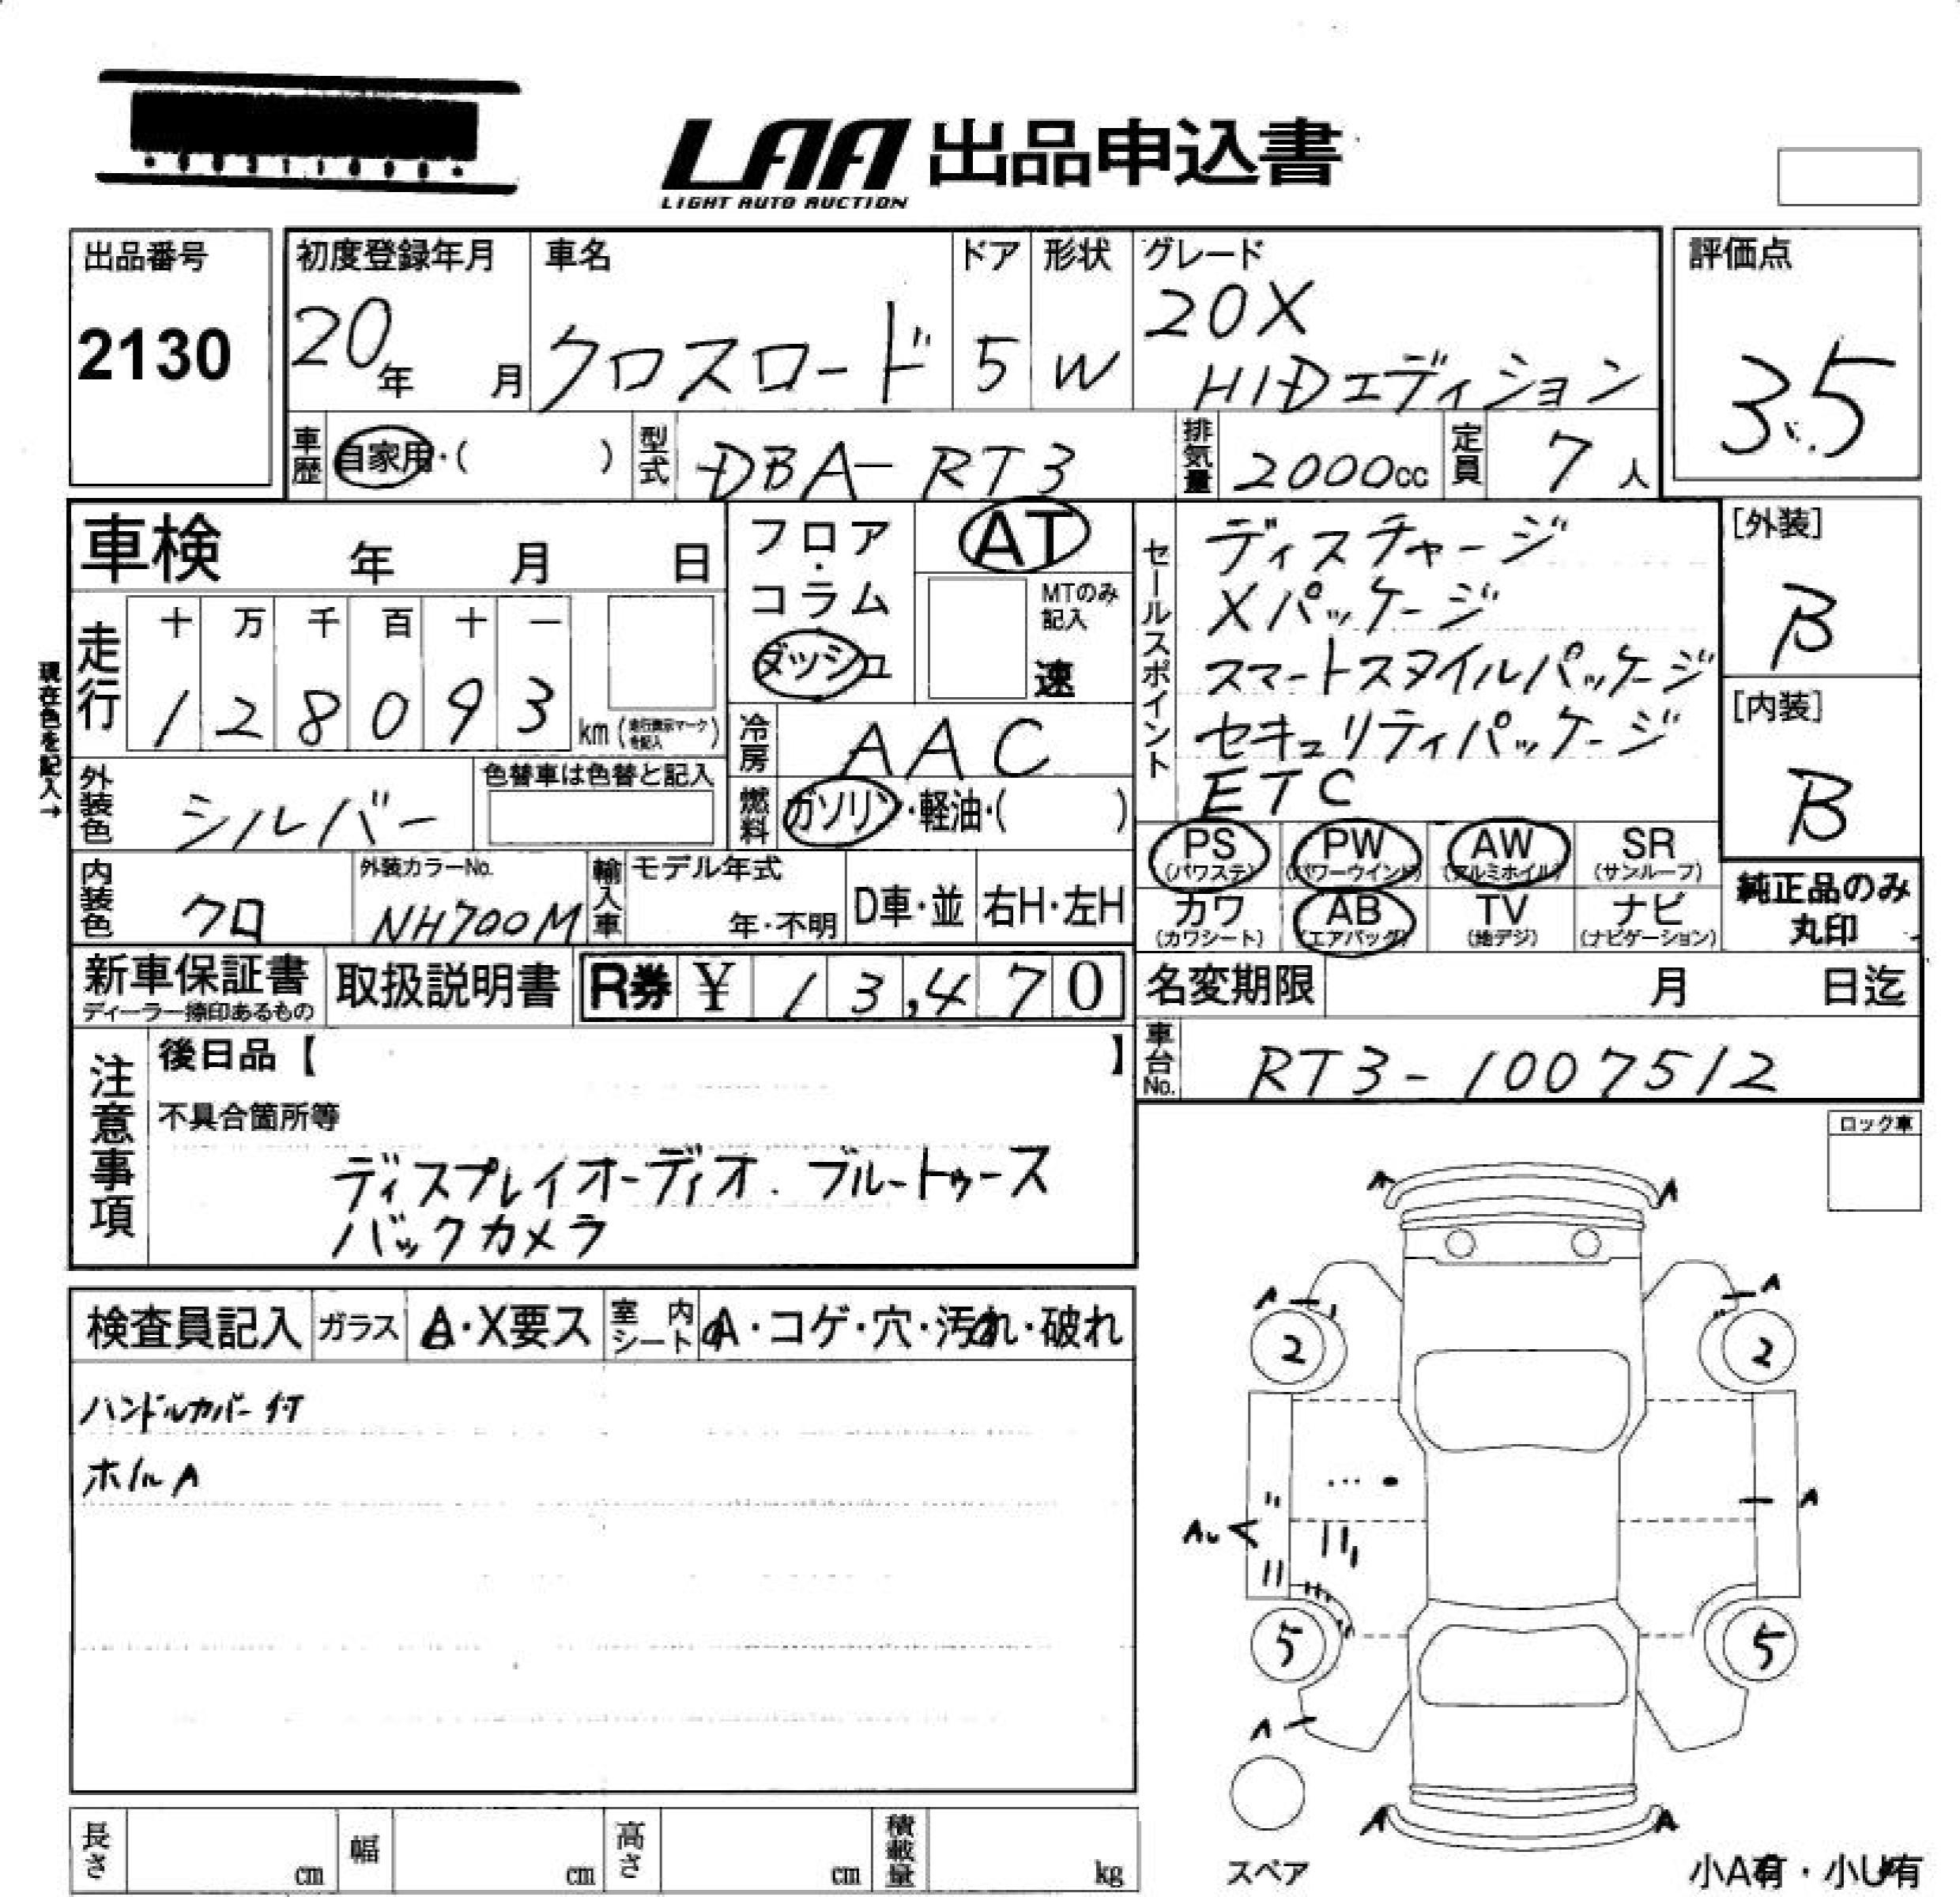 LAA 出品申込書
LIGHT AUTO AUCTION
出品番号
2130
初度登録年月
20年 月
車名
クロスロード
ドア
5
形状
W
グレード
20X
HIDエディション
評価点
3.5
車歴 自家用・( )
型式 DBA-RT3
排気量 2000cc
定員 7人
車検 年 月 日
フロア・コラム・ダッシュ
AT
MTのみ記入
速
セールスポイント
ディスチャージ
Xパッケージ
スマートスタイルパッケージ
セキュリティパッケージ
ETC
[外装]
B
[内装]
B
現在色を記入→
走行
十 万 千 百 十 一
1 2 8 0 9 3 km (走行表示マークを記入)
冷房 AAC
燃料 ガソリン・軽油・( )
外装色 シルバー
色替車は色替と記入
PS (パワステ) PW (パワーウインド) AW (アルミホイル) SR (サンルーフ)
カワ (カワシート) AB (エアバッグ) TV (地デジ) ナビ (ナビゲーション)
純正品のみ
丸印
内装色 クロ
外装カラーNo.
NH700M
輸入車
モデル年式
年・不明
D車・並
右H・左H
新車保証書
ディーラー捺印あるもの
取扱説明書
R券 ¥ 13,470
名変期限 月 日迄
車台No. RT3-1007512
注意事項
後日品【 】
不具合箇所等
ディスプレイオーディオ. ブルートゥース
バックカメラ
ロック車
検査員記入 ガラス A・X要ス 室内シート A・コゲ・穴・汚れ・破れ
ハンドルカバー付
ホイルA
A A
A A
2 2
A
A
5 5
A
A A
スペア
小A有・小U有
長さ cm 幅 cm 高さ cm 積載量 kg